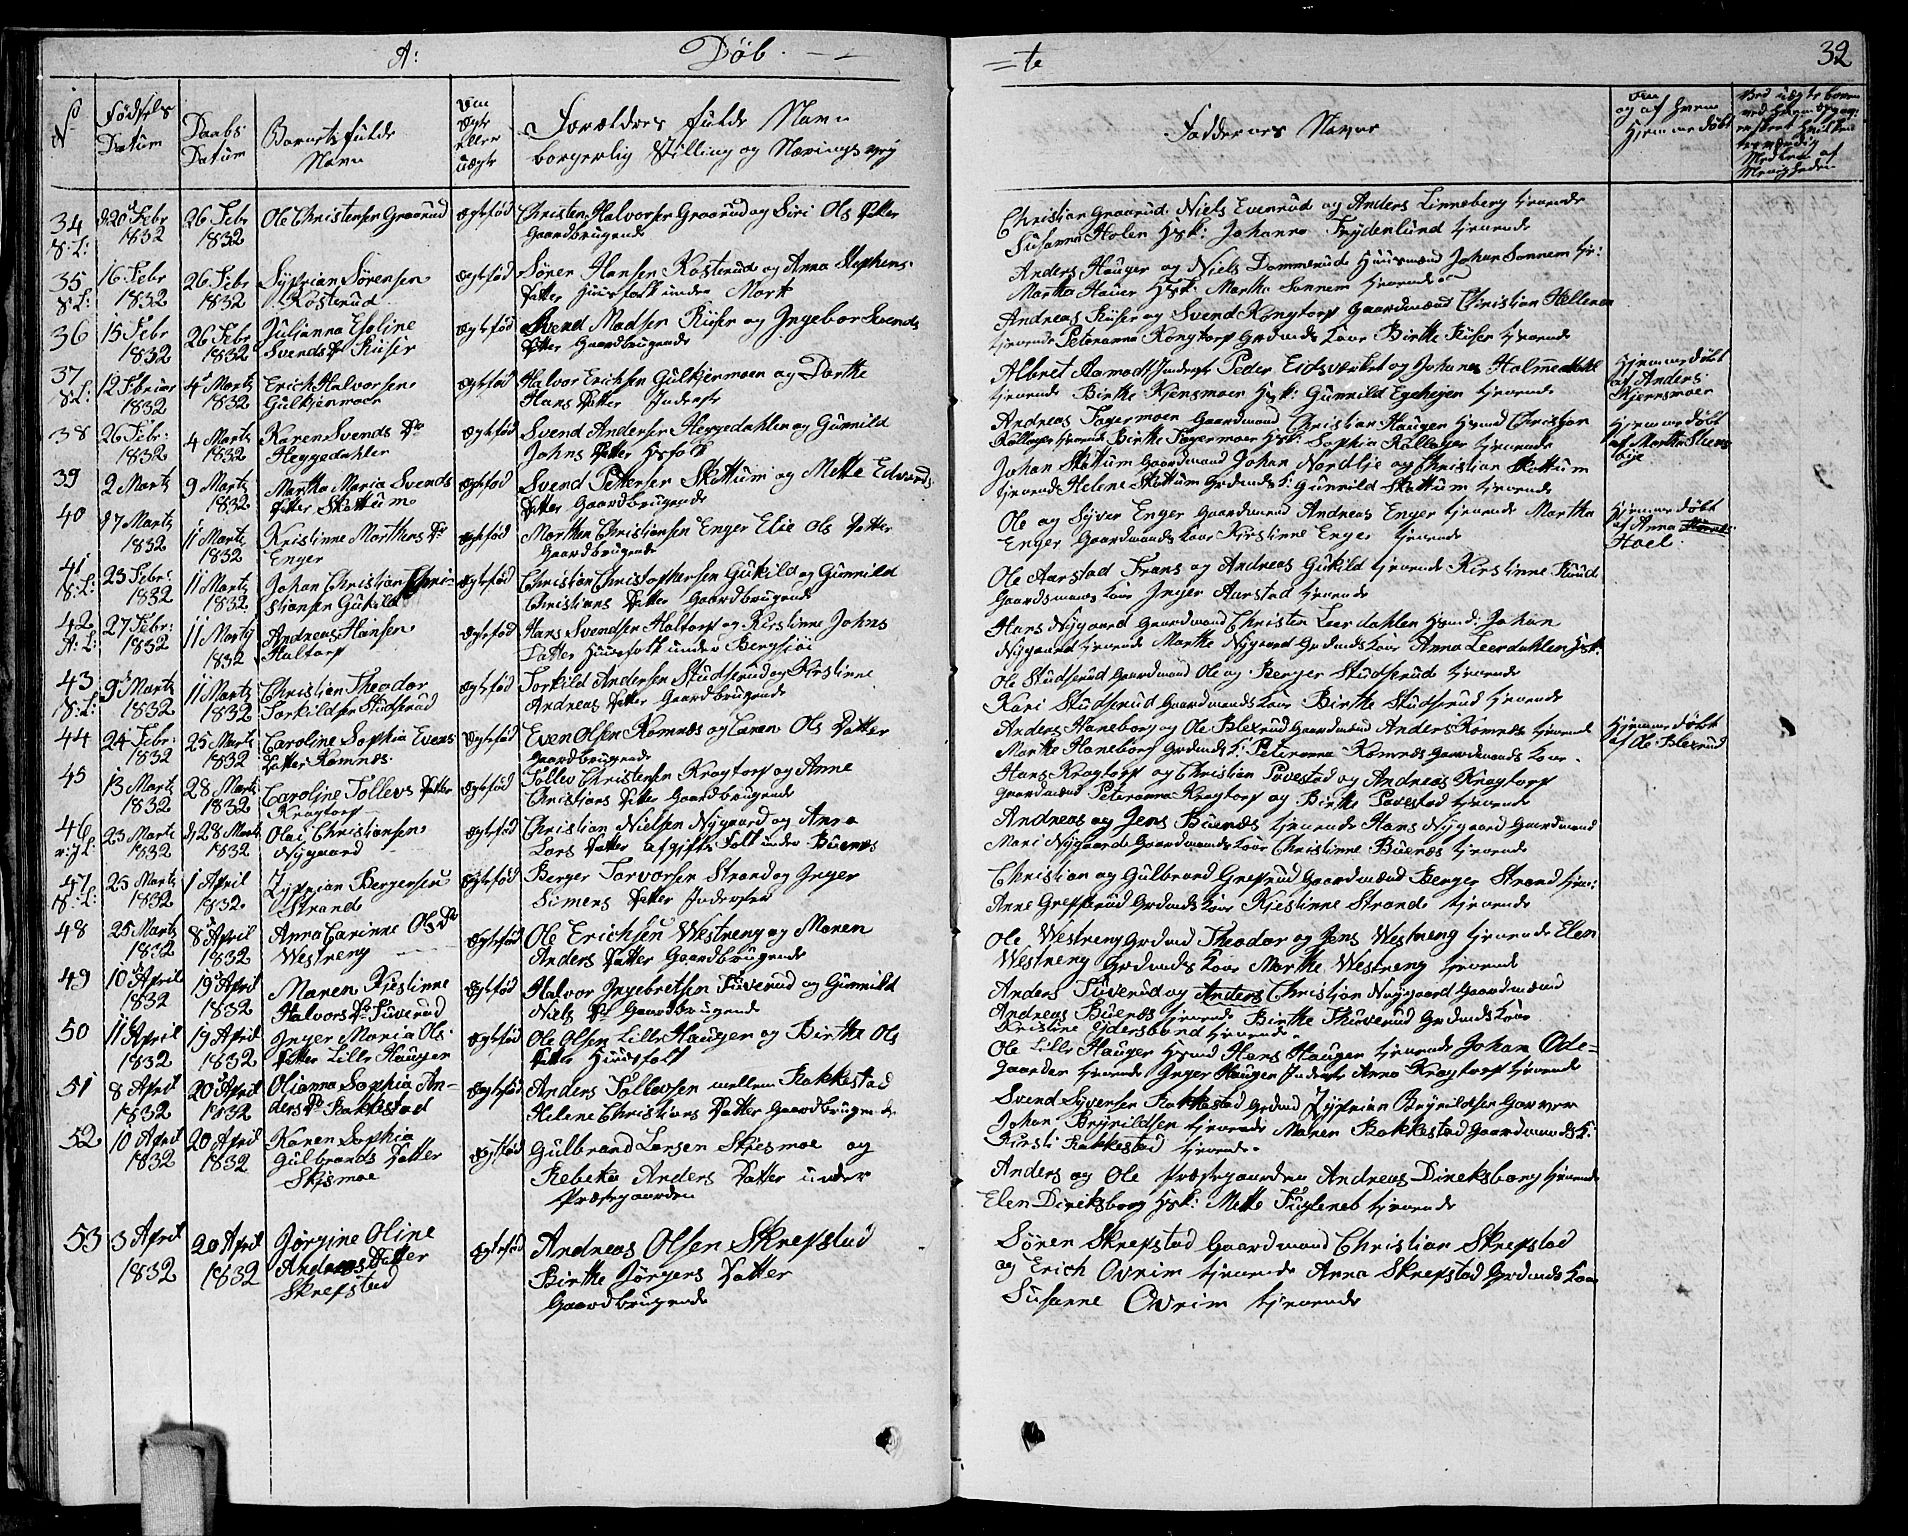 A:
Døb-
=te
32
No
Fødsels Datum
Daabs Datum
Barnets fulde Navn
Om Ægte eller uægte
Forældres fulde Navn
borgerlig Stilling og Næringsvej
Faddernes Navne
Om og af hvem Hjemmedøbt
34 20 Febr 1832 26 Febr 1832 Ole Christensen Graarud Ægtefød Christen Halvorsen Graarud og Siri Ols Datter
Gaardbrugende
Christian Graarud Niels Evenrud og Anders Linneberg tjenende
Susanna Holen Hsk: Johanna Frydenlund tjenende
35 16 Febr 1832 26 Febr 1832 Syprian Sørensen Kosterud Ægtefød Søren Hansen Kosterud og Anna Stephens
Datter Huusfolk under Mork
Anders Hauger og Niels Dammerud Huusmænd Johan Sonnem tje:
Martha Hauer Hsk: Marthe Sonnem tjenende
36 15 Febr 1832 26 Febr 1832 Julianna Eoline Svends Dr Kiiser Ægtefød Svend Madsen Kiiser og Ingebor Svends
Datter Gaardbrugende
Andreas Kiiser og Svend Kongtorp Gaardmænd Christian Hellenen
tjenende Peteranna Kongtorp Grdmds Kone Birthe Kiiser tjenende
37 12 Februar 1832 4 Marts 1832 Erich Halvorsen Gulkjenmoen Ægtefød Halvor Erichsen Gulkjenmoen og Dorthe
Hans Datter Inderste
Albret Aamodt Inderst Peder Eidsværket og Johanes Holmedahl
tjenende Birthe Kjensmoen Hsk: Gunnild Egehejen tjenende
Hjemmedøbt af Anders Kjernsmoen
38 26 Febr: 1832 4 Marts 1832 Karen Svends Dr Heggedahlen Ægtefød Svend Andersen Heggedahlen og Gunnild
Johns Datter Hsfolk
Andreas Fagermoen Gaardmand Christian Haugen Hsmd Christian
Kallager tjenende Birthe Fagermoen Hsk: Sophia Kallager tjenende
Hjemmedøbt af Marthe Steens
bye
39 2 Marts 9 Marts 1832 Martha Maria Svends Datter Skattum Ægtefød Svend Pettersen Skattum og Mette Edvards
Datter Gaardbrugende
Johan Skattum Gaardmand Johan Nordlje og Christian Skattum
tjenende Helene Skattum Grdmds K: Gunnild Skattum tjenende
40 7 Marts 1832 11 Marts 1832 Kristinne Marthens Dr Enger Ægtefød Morthen Christiansen Enger Elie Ols Datter
Gaardbrugende
Ole og Syver Enger Gaardmænd Andreas Enger tjenende Martha
Enger Gaardmands Kone Kirstinne Enger tjenende
Hjemmedøbt af Anna
Hoel
41 23 Febr: 1832 11 Marts 1832 Johan Christian Christiansen Gukild Ægtefød Christian Christophersen Gukild og Gunnild
Christians Datter Gaardbrugende
Ole Aarstad Frans og Andreas Gukild tjenende Kirstinne Ruud
Gaardmands Kone Inger Aarstad tjenende
42 27 Febr: 1832 11 Marts 1832 Andreas Hansen Haltorp Ægtefød Hans Svendsen Haltorp og Kirstinne Johns
Datter Huusfolk under Bergsjøi
Hans Nygaard Gaardmand Christen Leerdahlen Hsmd: Johan
Nygaard tjenende Marthe Nygaard Grdmds Kone Anna Leerdahlen Hsk:
43 9 Marts 1832 11 Marts 1832 Christian Theodor Torkildsen Studserud Ægtefød Torkild Andersen Studserud og Kirstinne
Andreas Datter Gaardbrugende
Ole Studserud Gaardmand Ole og Berger Studserud tjenende
Kari Studserud Gaardmands Kone Birthe Studserud tjenende
44 24 Febr: 1832 25 Marts 1832 Caroline Sophia Evens Datter Komnæs Ægtefød Even Olsen Komnæs og Caren Ols Datter
Gaardbrugende
Anders Haneborg og Ole Blexrud Gaardmænd Anders Komnæs tjenende
Marthe Haneborg Grdmds K: Peteranna Komnæs Gaardmands Kone
Hjemmedøbt af Ole Blexrud
45 13 Marts 1832 28 Marts 1832 Caroline Tollevs Datter Krogtorp Ægtefød Tollev Christensen Krogtorp og Anne
Christians Datter Gaardbrugende
Hans Krogtorp og Christian Povestad og Andreas Krogtorp
Gaardmænd Peteranna Krogtorp og Birthe Povestad tjenende
46 23 Marts 1832 28 Marts 1832 Olaus Christiansen Nygaard Ægtefød Christian Nielsen Nygaard og Anna
Lars Datter afgifts Folk under Buenæs
Andreas og Jens Buenæs tjenende Hans Nygaard Gaardmand
Mari Nygaard Gaardmands Kone Christinne Buenæs tjenende
47 25 Marts 1832 1 April 1832 Zyprian Bergersen Strande Ægtefød Berger Torvorsen Strand og Inger
Simens Datter Inderster
Christian og Gulbrand Grefsrud Gaardmænd Berger Strand tjen:
Anne Grefsrud Grdmds Kone Kjestinne Strande tjenende
48 25 Marts 1832 8 April 1832 Anna Carinne Ols Dr Westreng Ægtefød Ole Erichsen Westreng og Maren
Anders Datter Gaardbrugende
Ole Westreng Grdmd Theodor og Jens Westreng tjenende Elen
Westreng Grdmds Kone Marthe Westreng tjenende
49 10 April 1832 19 April 1832 Maren Kjestinne Halvors Dr Tuverud Ægtefød Halvor Ingebretsen Tuverud og Gunnild
Niels Dr Gaardbrugende
Anders Tuverud og Anders Christian Nygaard Gaardmænd
Andreas Buenæs tjenende Birthe Thuverud Grdmds Kone
Kristine Edersbond tjenende
50 11 April 1832 19 April 1832 Inger Maria Ols Datter Lille Hauger Ægtefød Ole Olsen Lille Hauger og Birthe Ols
Datter Huusfolk
Ole Lille Hauger Hsmd Hans Hauger tjenende Johan Ode-
gaarden tjenende Inger Hauger Inderste Anna Krogtorp tjenende
51 8 April 1832 20 April 1832 Olianna Sophia Anders Dr Rakkestad Ægtefød Anders Tollevsen mellem Rakkestad
Helene Christians Datter Gaardbrugende
Svend Syversen Rakkestad Grdmd Zyprian Brynildsen Garver
Johan Brynildsen tjenende Maren Rakkestad Gaardmands K:
Kirsti Rakkestad tjenende
52 10 April 1832 20 April 1832 Karen Sophia Gulbrands Datter Skjsmoe Ægtefød Gulbrand Larsen Skjesmoe og
Rebeka Anders Datter under
Præstegaarden
Anders og Ole Præstegaarden Andreas Direksborg tjenende
Elen Direksborg Hsk: Mette Fugleneb tjenende
53 3 April 1832 20 April 1832 Jørgine Oline Andreas Datter Skrepstad Ægtefød Andreas Olsen Skrepstad
Birthe Jørgens Datter
Gaardbrugende
Søren Skrepstad Gaardmand Christian Skrepstad
og Erich Ovrim tjenende Anna Skrepstad Grdmds Kone
Susanne Ovrim tjenende